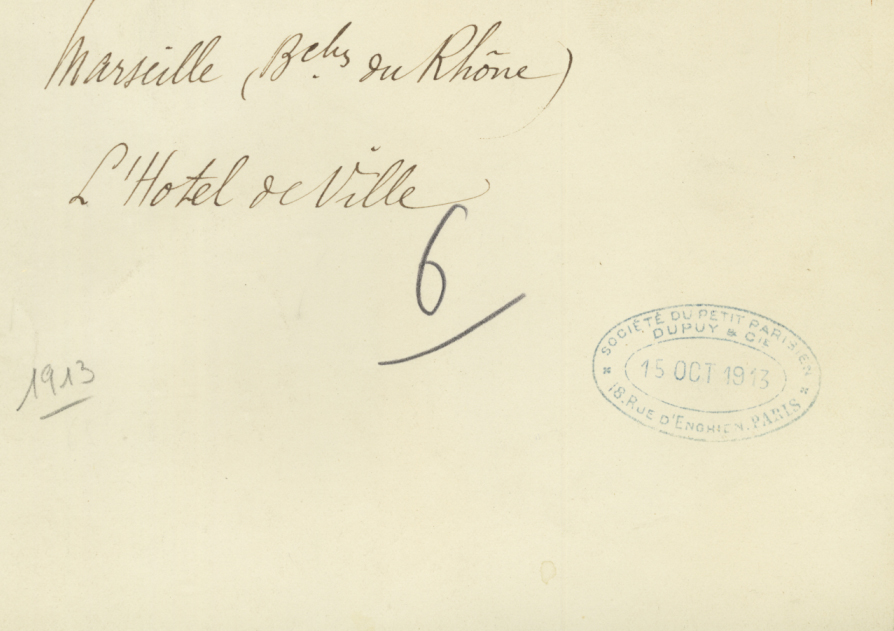 Marseille (Bches du Rhône)
L'Hotel de Ville
6
1913
SOCIÉTÉ DU PETIT PARISIEN
DUPUY & CIE
15 OCT 1913
18, RUE D'ENGHIEN, PARIS